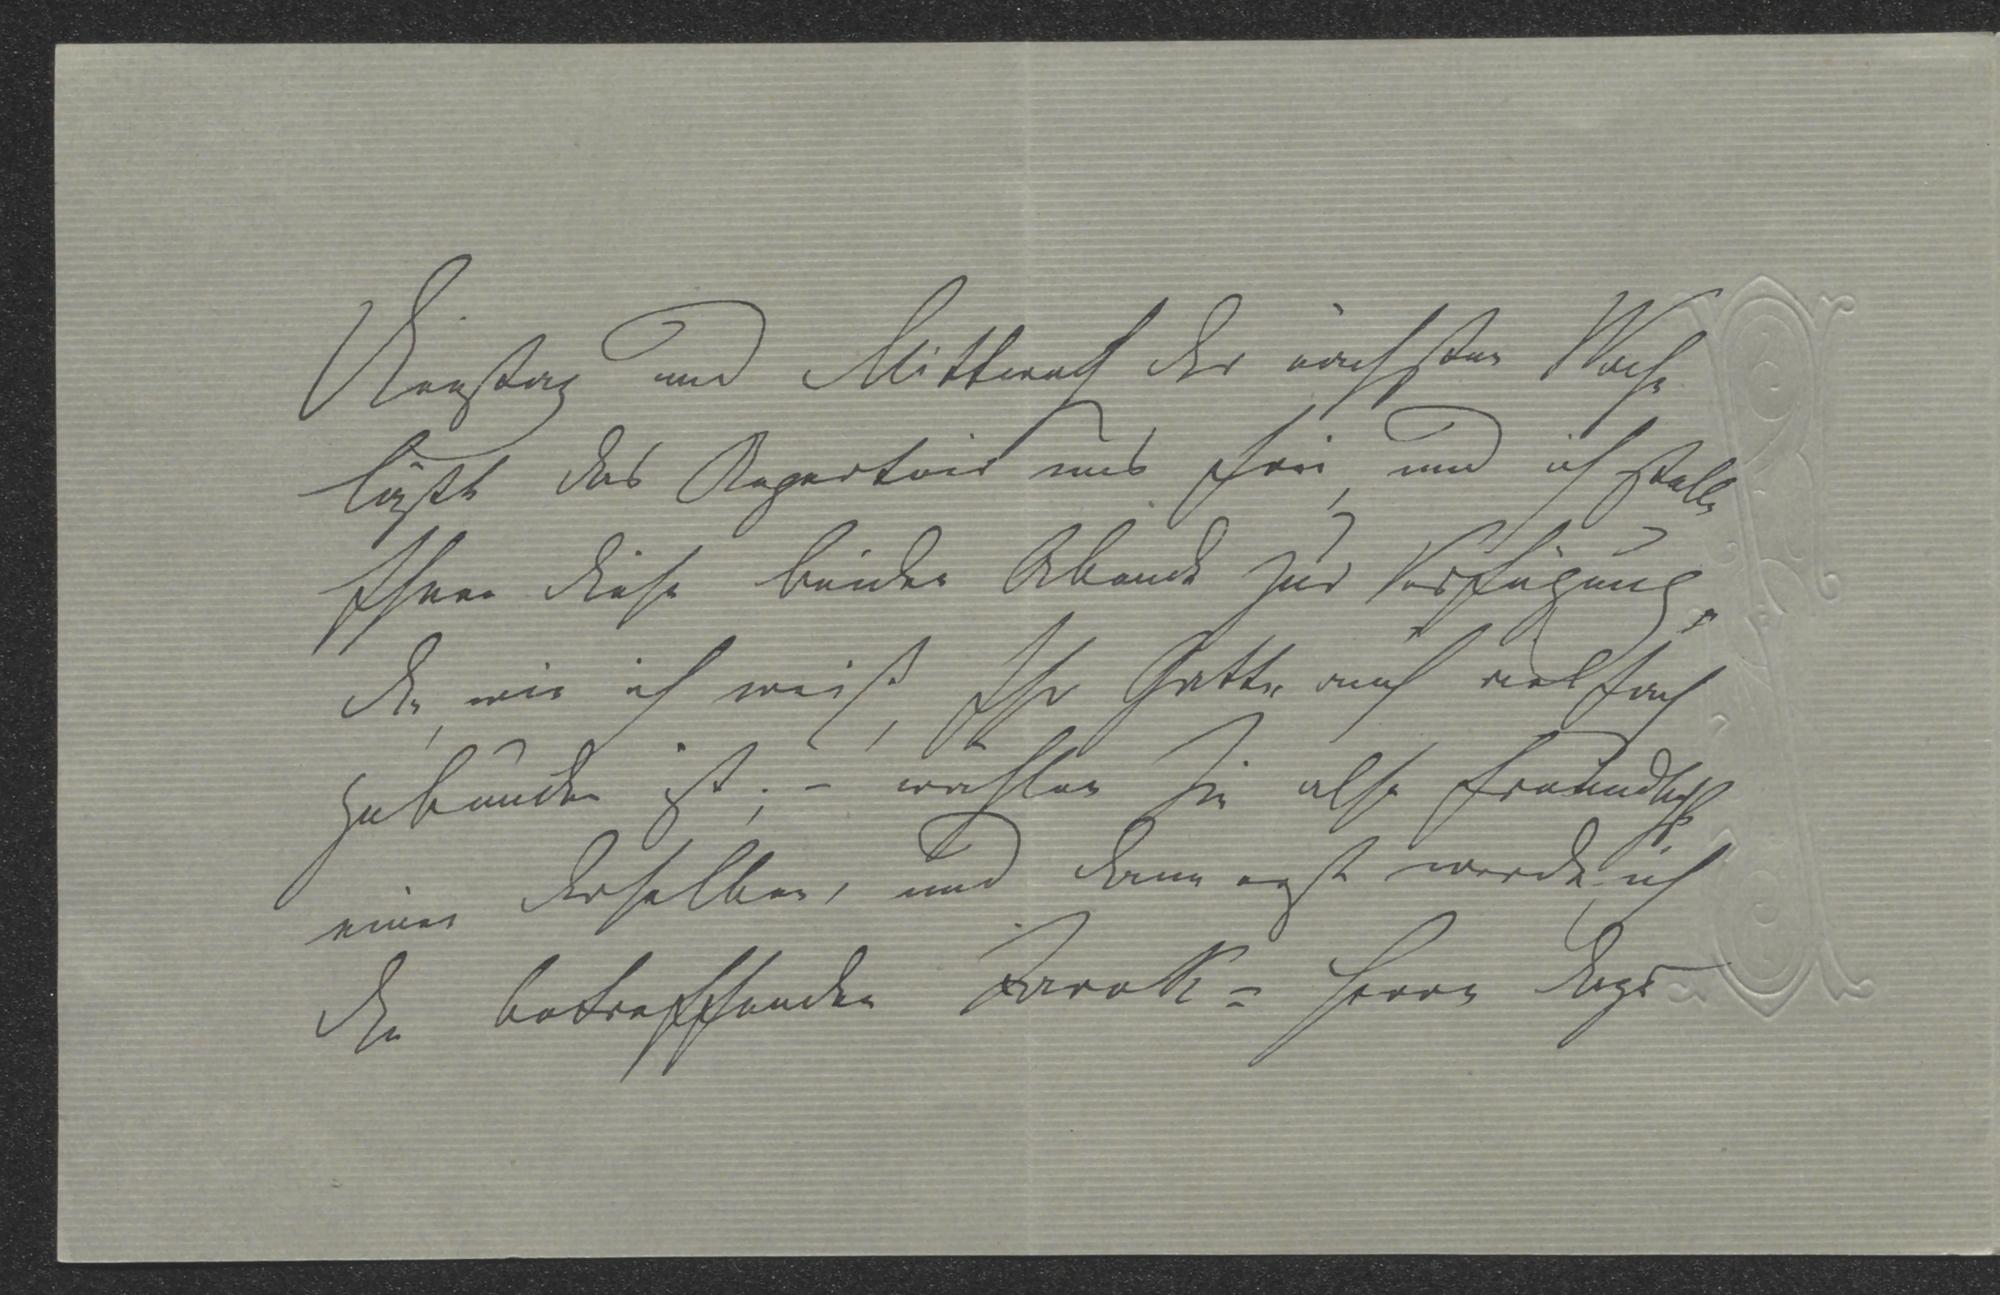 Dienstag und Mittwoch der nächsten Woche
läßt das Repertoir uns frei, und ich stelle
Ihnen diese beiden Abende zur Verfügung,
da, wie ich weiß, Ihr Gatte auch vielfach
gebunden ist; – wählen Sie also freundlichst
einen derselben, und dann erst werde ich
die betreffenden Tarok-Herrn dazu